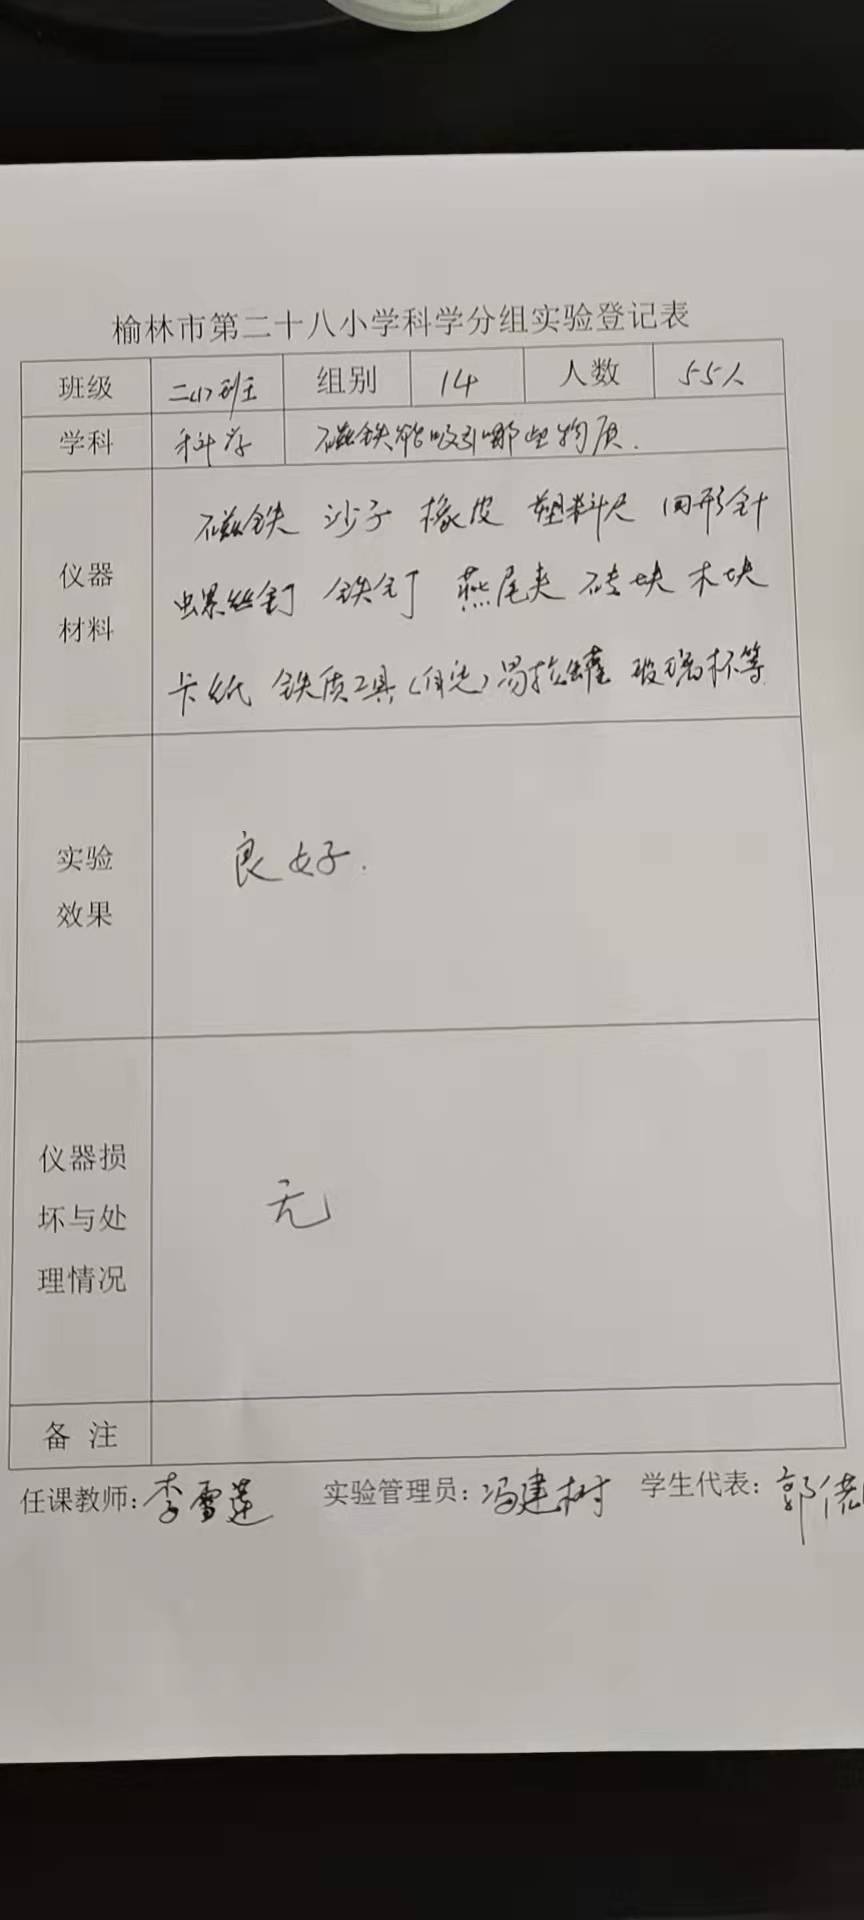 榆林市第二十八小学科学分组实验登记表
班级 二(1)班 组别 14 人数 55人
学科 科学 磁铁能吸引哪些物质.
仪器材料
磁铁 沙子 橡皮 塑料尺 回形针
螺丝钉 铁钉 燕尾夹 砖块 木块
卡纸 铁质工具(自选)易拉罐 玻璃杯等
实验效果
良好.
仪器损坏与处理情况
无
备 注
任课教师:李雪莲 实验管理员:冯建树 学生代表:郭